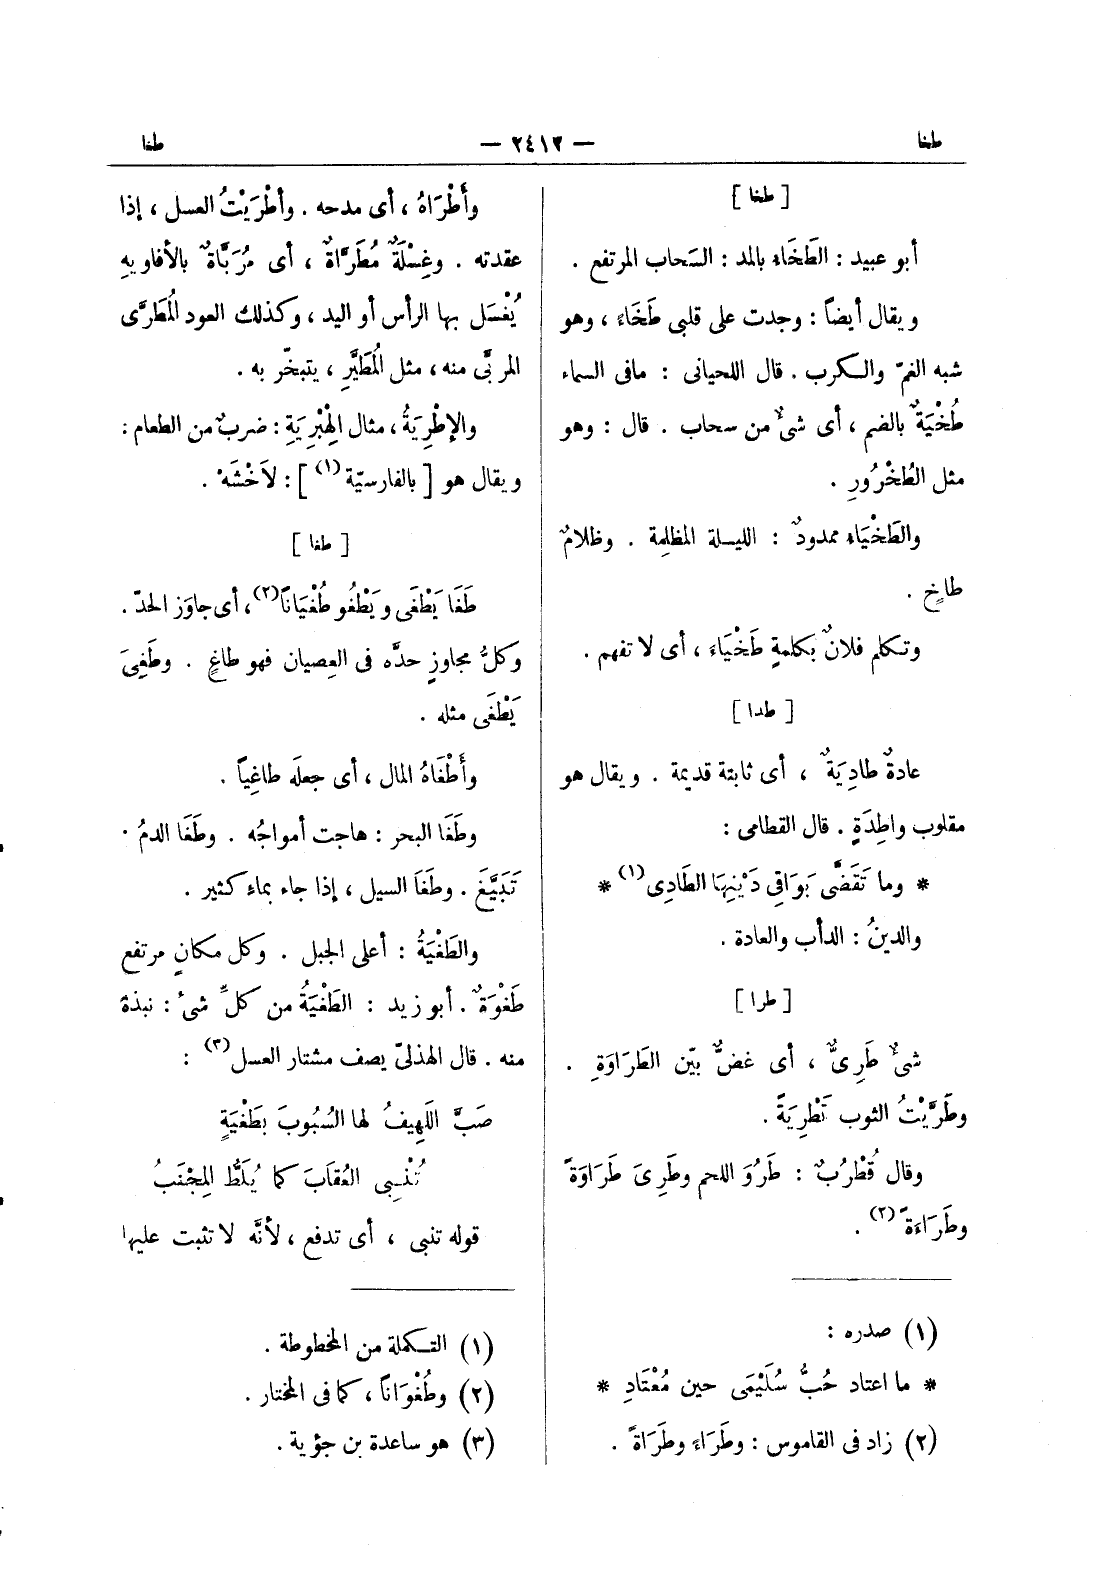 طخا
— ٢٤١٢ —
طغا
[ طخا ]
أبو عبيد : الطَخَاء بالمد : السَحاب المرتفع .
ويقال أيضاً : وجدت على قلبى طَخَاءً ، وهو
شبه الغمّ والكرب . قال اللحيانى : مافى السماء
طُخْيَةٌ بالضم ، أى شىءٌ من سحاب . قال : وهو
مثل الطُخْرُورِ .
والطَخْيَاء ممدودٌ : الليلة المظلِمة . وظلامٌ
طاخٍ .
وتكلم فلانٌ بكلمةٍ طَخْيَاءَ ، أى لا تفهم .
[ طدا ]
عادةٌ طادِيَةٌ ، أى ثابتة قديمة . ويقال هو
مقلوب واطِدَةٍ . قال القطامى :
* وما تَقَضَّى بَوَاقِى دَيْنِهَا الطَادِى (١) *
والدينُ : الدأب والعادة .
[ طرا ]
شىءٌ طَرِىٌّ ، أى غضٌّ بيّن الطَرَاوَةِ .
وطَرَّيْتُ الثوب تَطْرِيَةً .
وقال قُطْرُبٌ : طَرُوَ اللحم وطَرِىَ طَرَاوَةً
وطَرَاءَةً (٢) .
(١) صدره :
* ما اعتاد حُبُّ سُلَيْمَى حين مُعْتَادِ *
(٢) زاد فى القاموس : وطَرَاءً وطَرَاةً .
وأَطْرَاهُ ، أى مدحه . وأَطْرَيْتُ العسل ، إذا
عقدته . وغِسْلَةٌ مُطَرَّاةٌ ، أى مُرَبَّاةٌ بالأفاويهِ
يُغْسَل بها الرأس أو اليد ، وكذلك العود المُطَرَّى
المربَّى منه ، مثل المُطَيَّرِ ، يتبخّر به .
والإطْرِيَةُ ، مثال الهِبْرِيَةِ : ضربٌ من الطعام :
ويقال هو [ بالفارسيّة (١) ] : لاَخْشَهْ .
[ طغا ]
طَغَا يَطْغَى ويَطْغُو طُغْيَاناً (٢) ، أى جاوَز الحدّ .
وكلُّ مجاوزٍ حدَّه فى العِصيان فهو طاغٍ . وطَغِىَ
يَطْغَى مثله .
وأَطْغَاهُ المال ، أى جعلَه طاغِياً .
وطَغَا البحر : هاجت أمواجُه . وطَغَا الدمُ .
تَبَيَّغَ . وطَغَا السيل ، إذا جاء بماء كثير .
والطَغْيَةُ : أعلى الجبل . وكل مكانٍ مرتفع
طَغْوَةٌ . أبو زيد : الطَغْيَةُ من كلِّ شىء : نبذة
منه . قال الهذلىّ يصف مشتار العسل (٣) :
صَبَّ اللَهِيفُ لها السُبُوبَ بِطَغْيَةٍ
تُنْبِى العُقَابَ كما يُلَطُّ المِجْنَبُ
قوله تنبى ، أى تدفع ، لأنَّه لا تثبت عليها
(١) التكملة من المخطوطة .
(٢) وطُغْوَاناً ، كما فى المختار .
(٣) هو ساعدة بن جؤية .